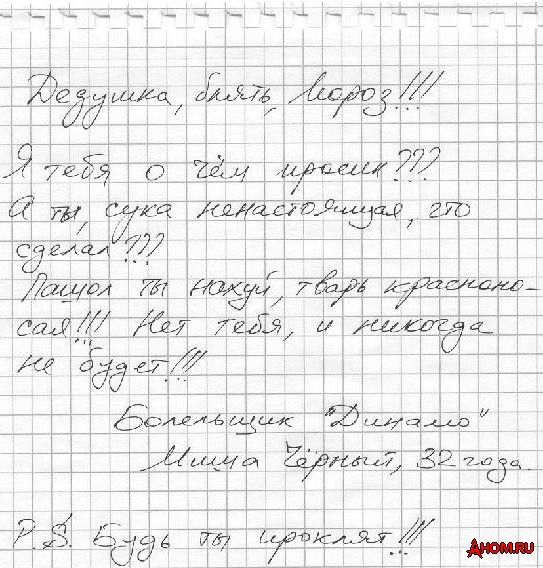 Дедушка, блять, Мороз!!!
Я тебя о чём просил???
А ты, сука ненастоящая, что
сделал???
Пашол ты нахуй, тварь красноно-
сая!!! Нет тебя, и никогда
не будет!!!
Болельщик "Динамо"
Миша Чёрный, 32 года
P.S. Будь ты проклят!!!
Aном.RU